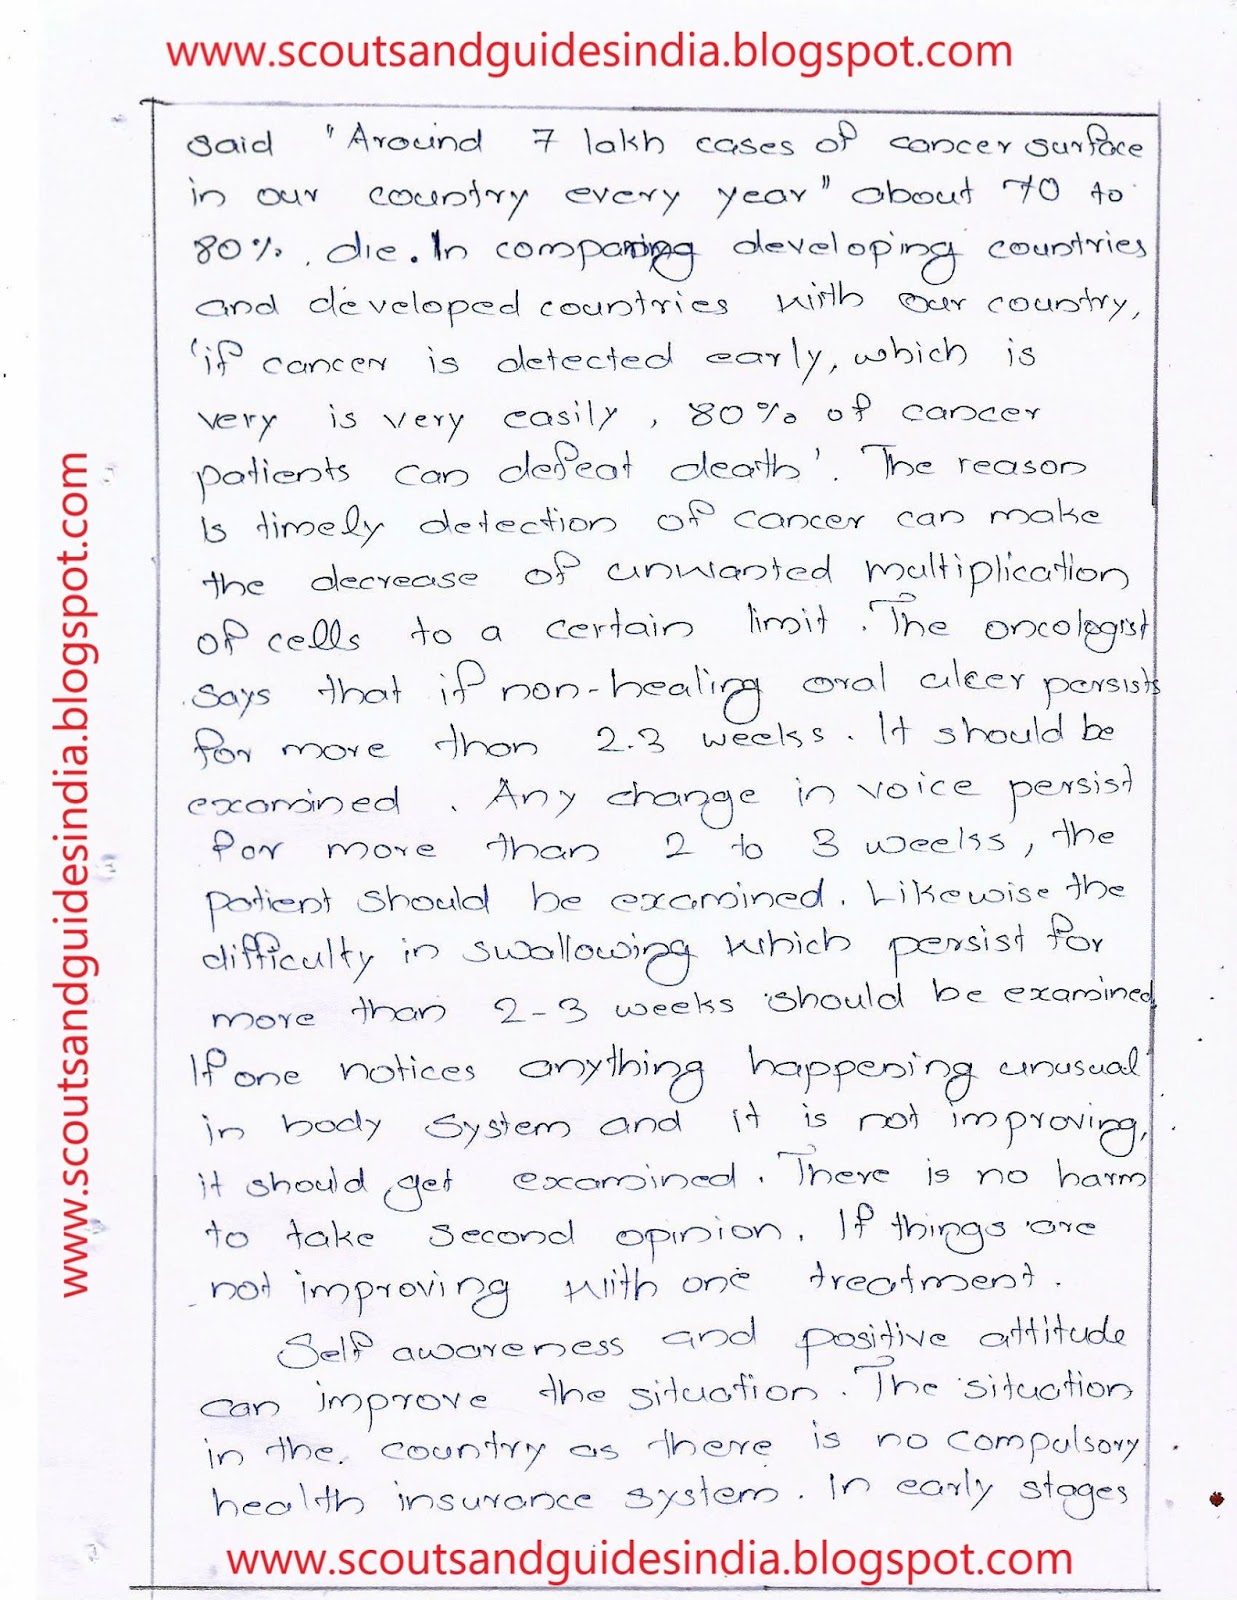 www.scoutsandguidesindia.blogspot.com
said "Around 7 lakh cases of cancer surface
in our country every year" about 70 to
80%. die. In comparing developing countries
and developed countries with our country,
'if cancer is detected early, which is
very is very easily, 80% of cancer
patients can defeat death'. The reason
Is timely detection of cancer can make
the decrease of unwanted multiplication
of cells to a certain limit. The oncologist
says that if non-healing oral ulcer persists
for more than 2.3 weeks. It should be
examined. Any change in voice persist
for more than 2 to 3 weeks, the
patient should be examined. Likewise the
difficulty in swallowing which persist for
more than 2-3 weeks should be examined
If one notices anything happening unusual
in body system and it is not improving,
it should get examined. There is no harm
to take second opinion. If things are
not improving with one treatment.
Self awareness and positive attitude
can improve the situation. The situation
in the. country as there is no compulsory
health insurance system. In early stages
www.scoutsandguidesindia.blogspot.com
www.scoutsandguidesindia.blogspot.com